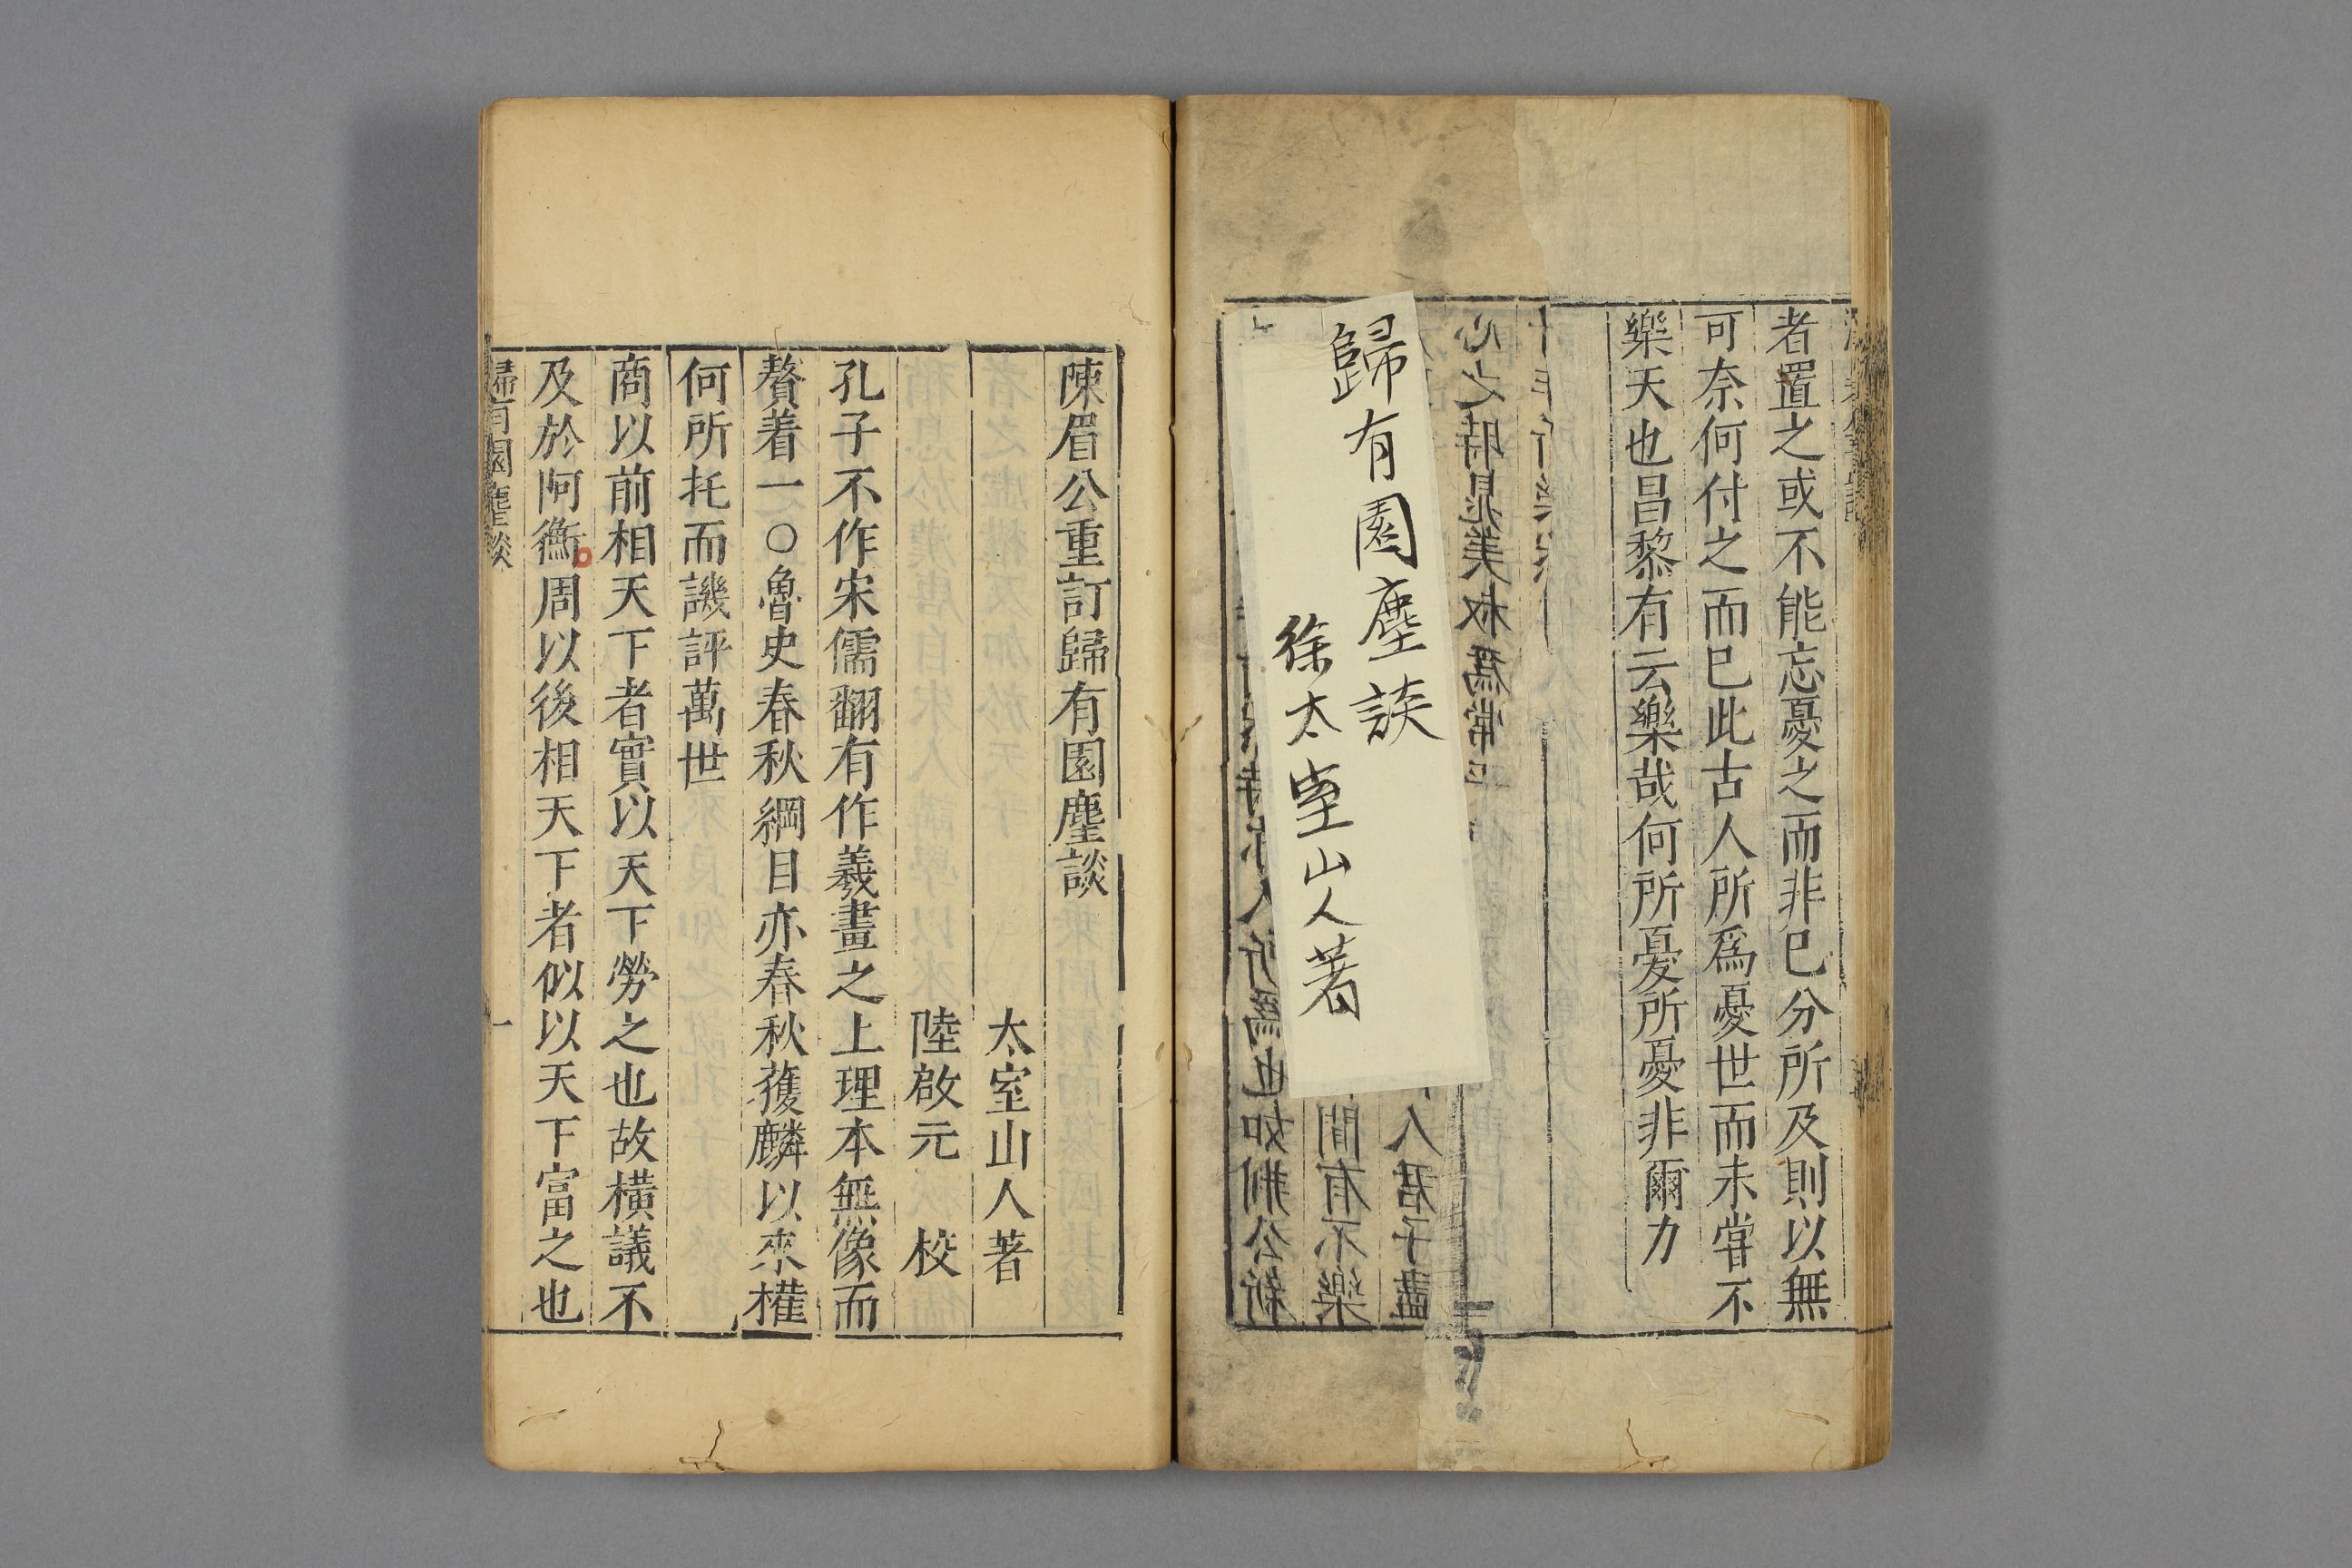 者置之或不能忘憂之而非已分所及則以無
可奈何付之而已此古人所爲憂世而未嘗不
樂天也昌黎有云樂哉何所憂所憂非爾力
歸有園塵談
徐太室山人著
陳眉公重訂歸有園塵談
太室山人著
陸啟元 校
孔子不作宋儒翻有作羲畫之上理本無像而
贅着一〇魯史春秋綱目亦春秋獲麟以來權
何所托而譏評萬世
商以前相天下者實以天下勞之也故橫議不
及於阿衡周以後相天下者似以天下富之也
歸有園塵談 一